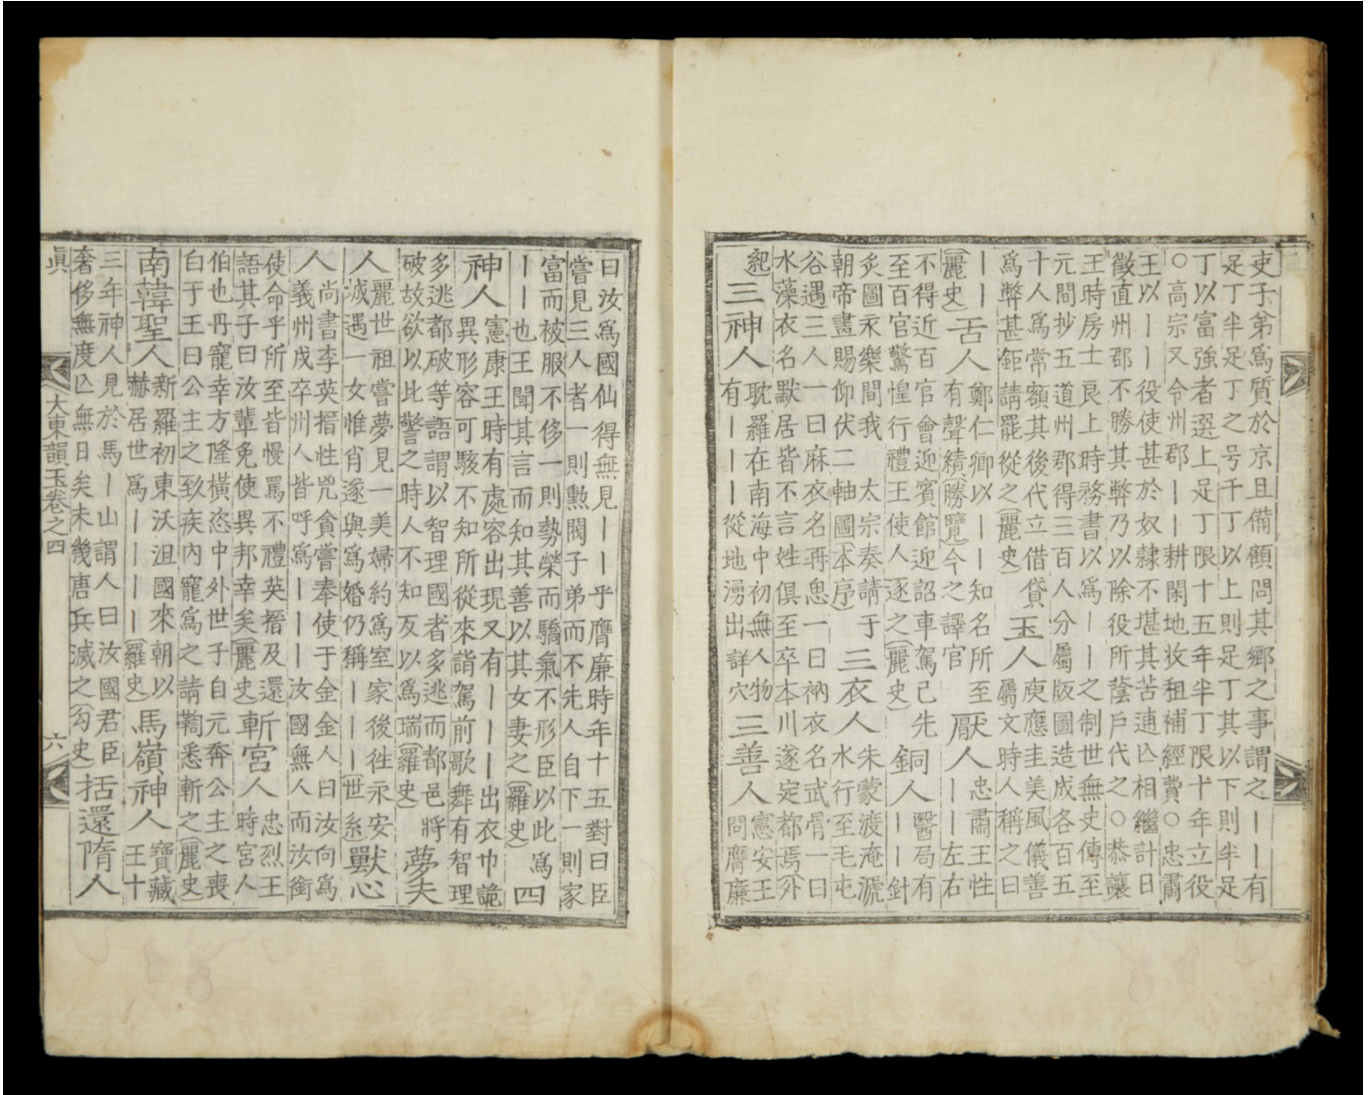 吏子弟爲質於京且備顧問其鄉之事謂之丨丨有
足丁半足丁之号千丁以上則足丁其以下則半足
丁以富強者選上足丁限十五年半丁限十年立役
○高宗又令州郡丨丨耕閑地收租補經費○忠肅
王以丨丨役使甚於奴隷不堪其苦逋亡相繼計日
徵直州郡不勝其弊乃以除役所蔭戶代之○恭讓
王時房士良上時務書以爲丨丨之制世無史傳至
元間抄五道州郡得三百人分屬版圖造成各百五
十人爲常額其後代立借貸
爲弊甚鉅請罷從之(麗史)
玉人
庾應圭美風儀善
屬文時人稱之曰
丨丨
(麗史)
舌人
鄭仁卿以丨丨知名所至
有聲績(勝覽)今之譯官
厭人
忠肅王性
丨丨左右
不得近百官會迎賓館迎詔車駕已先
至百官驚惶行禮王使人逐之(麗史)
銅人
醫局有
丨丨針
炙圖永樂間我 太宗奏請于
朝帝畫賜仰伏二軸圖(本序)
三衣人
朱蒙渡淹㴲
水行至毛屯
谷遇三人一曰麻衣名再思一曰衲衣名武骨一曰
水藻衣名默居皆不言姓俱至卒本川遂定都焉(外
紀)
三神人
耽羅在南海中初無人物
有丨丨丨從地湧出詳穴
三善人
憲安王
問膺廉
曰汝爲國仙得無見丨丨乎膺廉時年十五對曰臣
嘗見三人者一則勲閥子弟而不先人自下一則家
富而被服不侈一則勢榮而驕氣不形臣以此爲
丨丨也王聞其言而知其善以其女妻之(羅史)
四神人
憲康王時有處容出現又有丨丨丨出衣巾詭
異形容可駭不知所從來詣駕前歌舞有智理
多逃都破等語謂以智理國者多逃而都邑將
破故欲以此警之時人不知反以爲瑞(羅史)
夢夫人
麗世祖嘗夢見一美婦約爲室家後徃永安
城遇一女惟肖遂與爲婚仍稱丨丨丨(世系)
獸心人
尚書李英搢性兇貪嘗奉使于金金人曰汝向爲
義州戍卒州人皆呼爲丨丨丨汝國無人而汝銜
使命乎所至皆慢罵不禮英搢及還
語其子曰汝輩免使異邦幸矣(麗史)
斬宮人
忠烈王
時宮人
伯也丹寵幸方隆橫恣中外世子自元奔公主之喪
白于王曰公主之致疾內寵爲之請鞫悉斬之(麗史)
南韓聖人
新羅初東沃沮國來朝以
赫居世爲丨丨丨丨(羅史)
馬嶺神人
寶藏
王十
三年神人見於馬丨山謂人曰汝國君臣
奢侈無度亡無日矣未幾唐兵滅之(勾史)
括還隋人
眞
大東韻玉卷之四
六